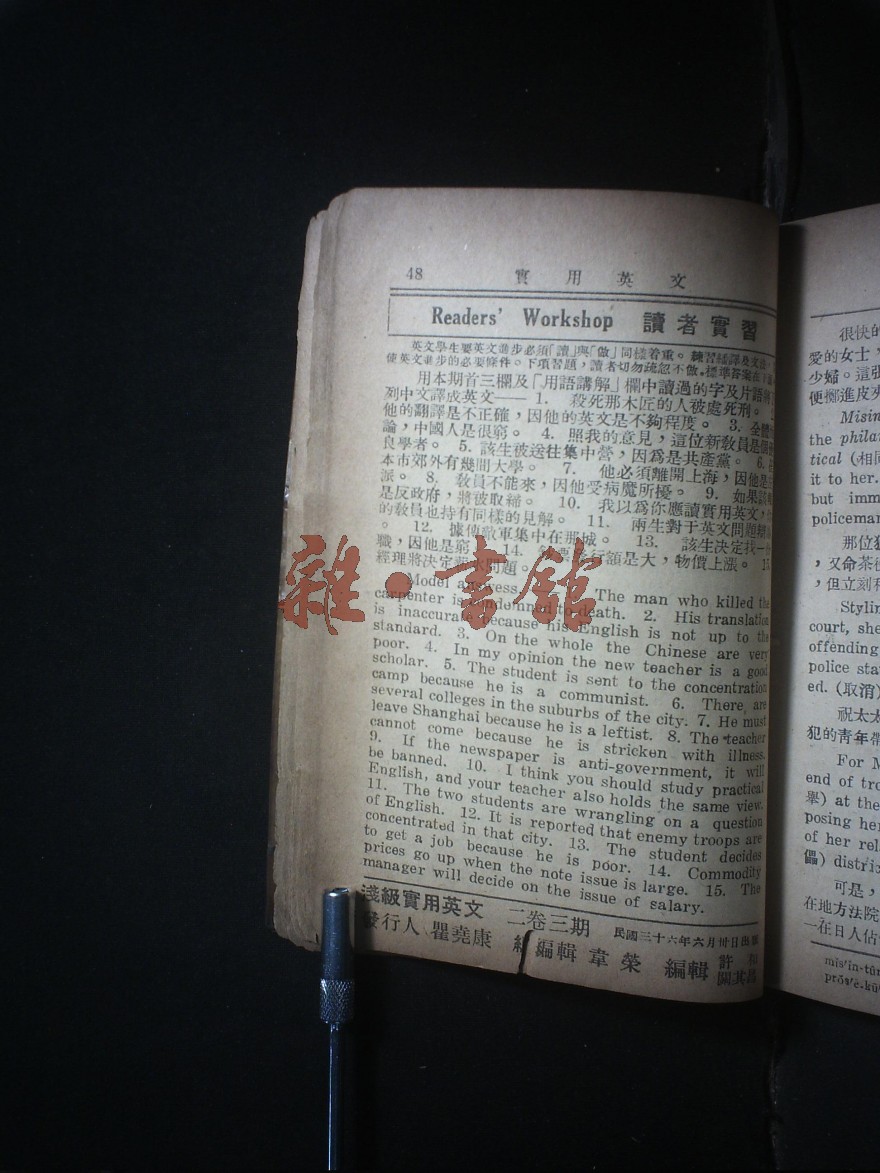 48 實用英文
Readers' Workshop 讀者實習
英文學生要英文進步必須「讀」與「做」同樣着重。練習翻譯及文法
使英文進步的必要條件。下項習題,讀者切勿疏忽不做。標準答案在下
用本期首三欄及「用語講解」欄中讀過的字及片語
列中文譯成英文—— 1. 殺死那木匠的人被處死刑。
他的翻譯是不正確,因他的英文是不夠程度。 3. 全體
論,中國人是很窮。 4. 照我的意見,這位新敎員是個
良學者。 5. 該生被送往集中營,因爲是共產黨。 6.
本市郊外有幾間大學。 7. 他必須離開上海,因他是
派。 8. 敎員不能來,因他受病魔所擾。 9. 如果該
是反政府,將被取締。 10. 我以爲你應讀實用英文,
的敎員也持有同樣的見解。 11. 兩生對于英文問題
。 12. 據傳敵軍集中在那城。 13. 該生决定找一
職,因他是窮。 14. 發行額是大,物價上漲。
經理將决定薪水問題。
Model The man who killed the
carpenter is condemned to death. 2. His translation
is inaccurate because his English is not up to the
standard. 3. On the whole the Chinese are very
poor. 4. In my opinion the new teacher is a good
scholar. 5. The student is sent to the concentration
camp because he is a communist. 6. There are
several colleges in the suburbs of the city. 7. He must
leave Shanghai because he is a leftist. 8. The teacher
cannot come because he is stricken with illness.
9. If the newspaper is anti-government, it will
be banned. 10. I think you should study practical
English, and your teacher also holds the same view.
11. The two students are wrangling on a question
of English. 12. It is reported that enemy troops are
concentrated in that city. 13. The student decides
to get a job because he is poor. 14. Commodity
prices go up when the note issue is large. 15. The
manager will decide on the issue of salary.
淺級實用英文 二卷三期 民國三十六年六月卅日出
發行人 瞿堯康 編輯 韋榮 編輯 許
雜·書館
很快的
愛的女士,
少婦。這張
便擲進皮夾
Misin
the philan
tical (相同
it to her.
but imm
policeman
那位
,又命茶
,但立刻
Stylin
court, she
offending
police sta
ed. (取消)
祝太太
犯的青年帶
For M
end of tro
舉) at the
posing her
of her rel
distric
可是,
在地方法院
一在日人佔